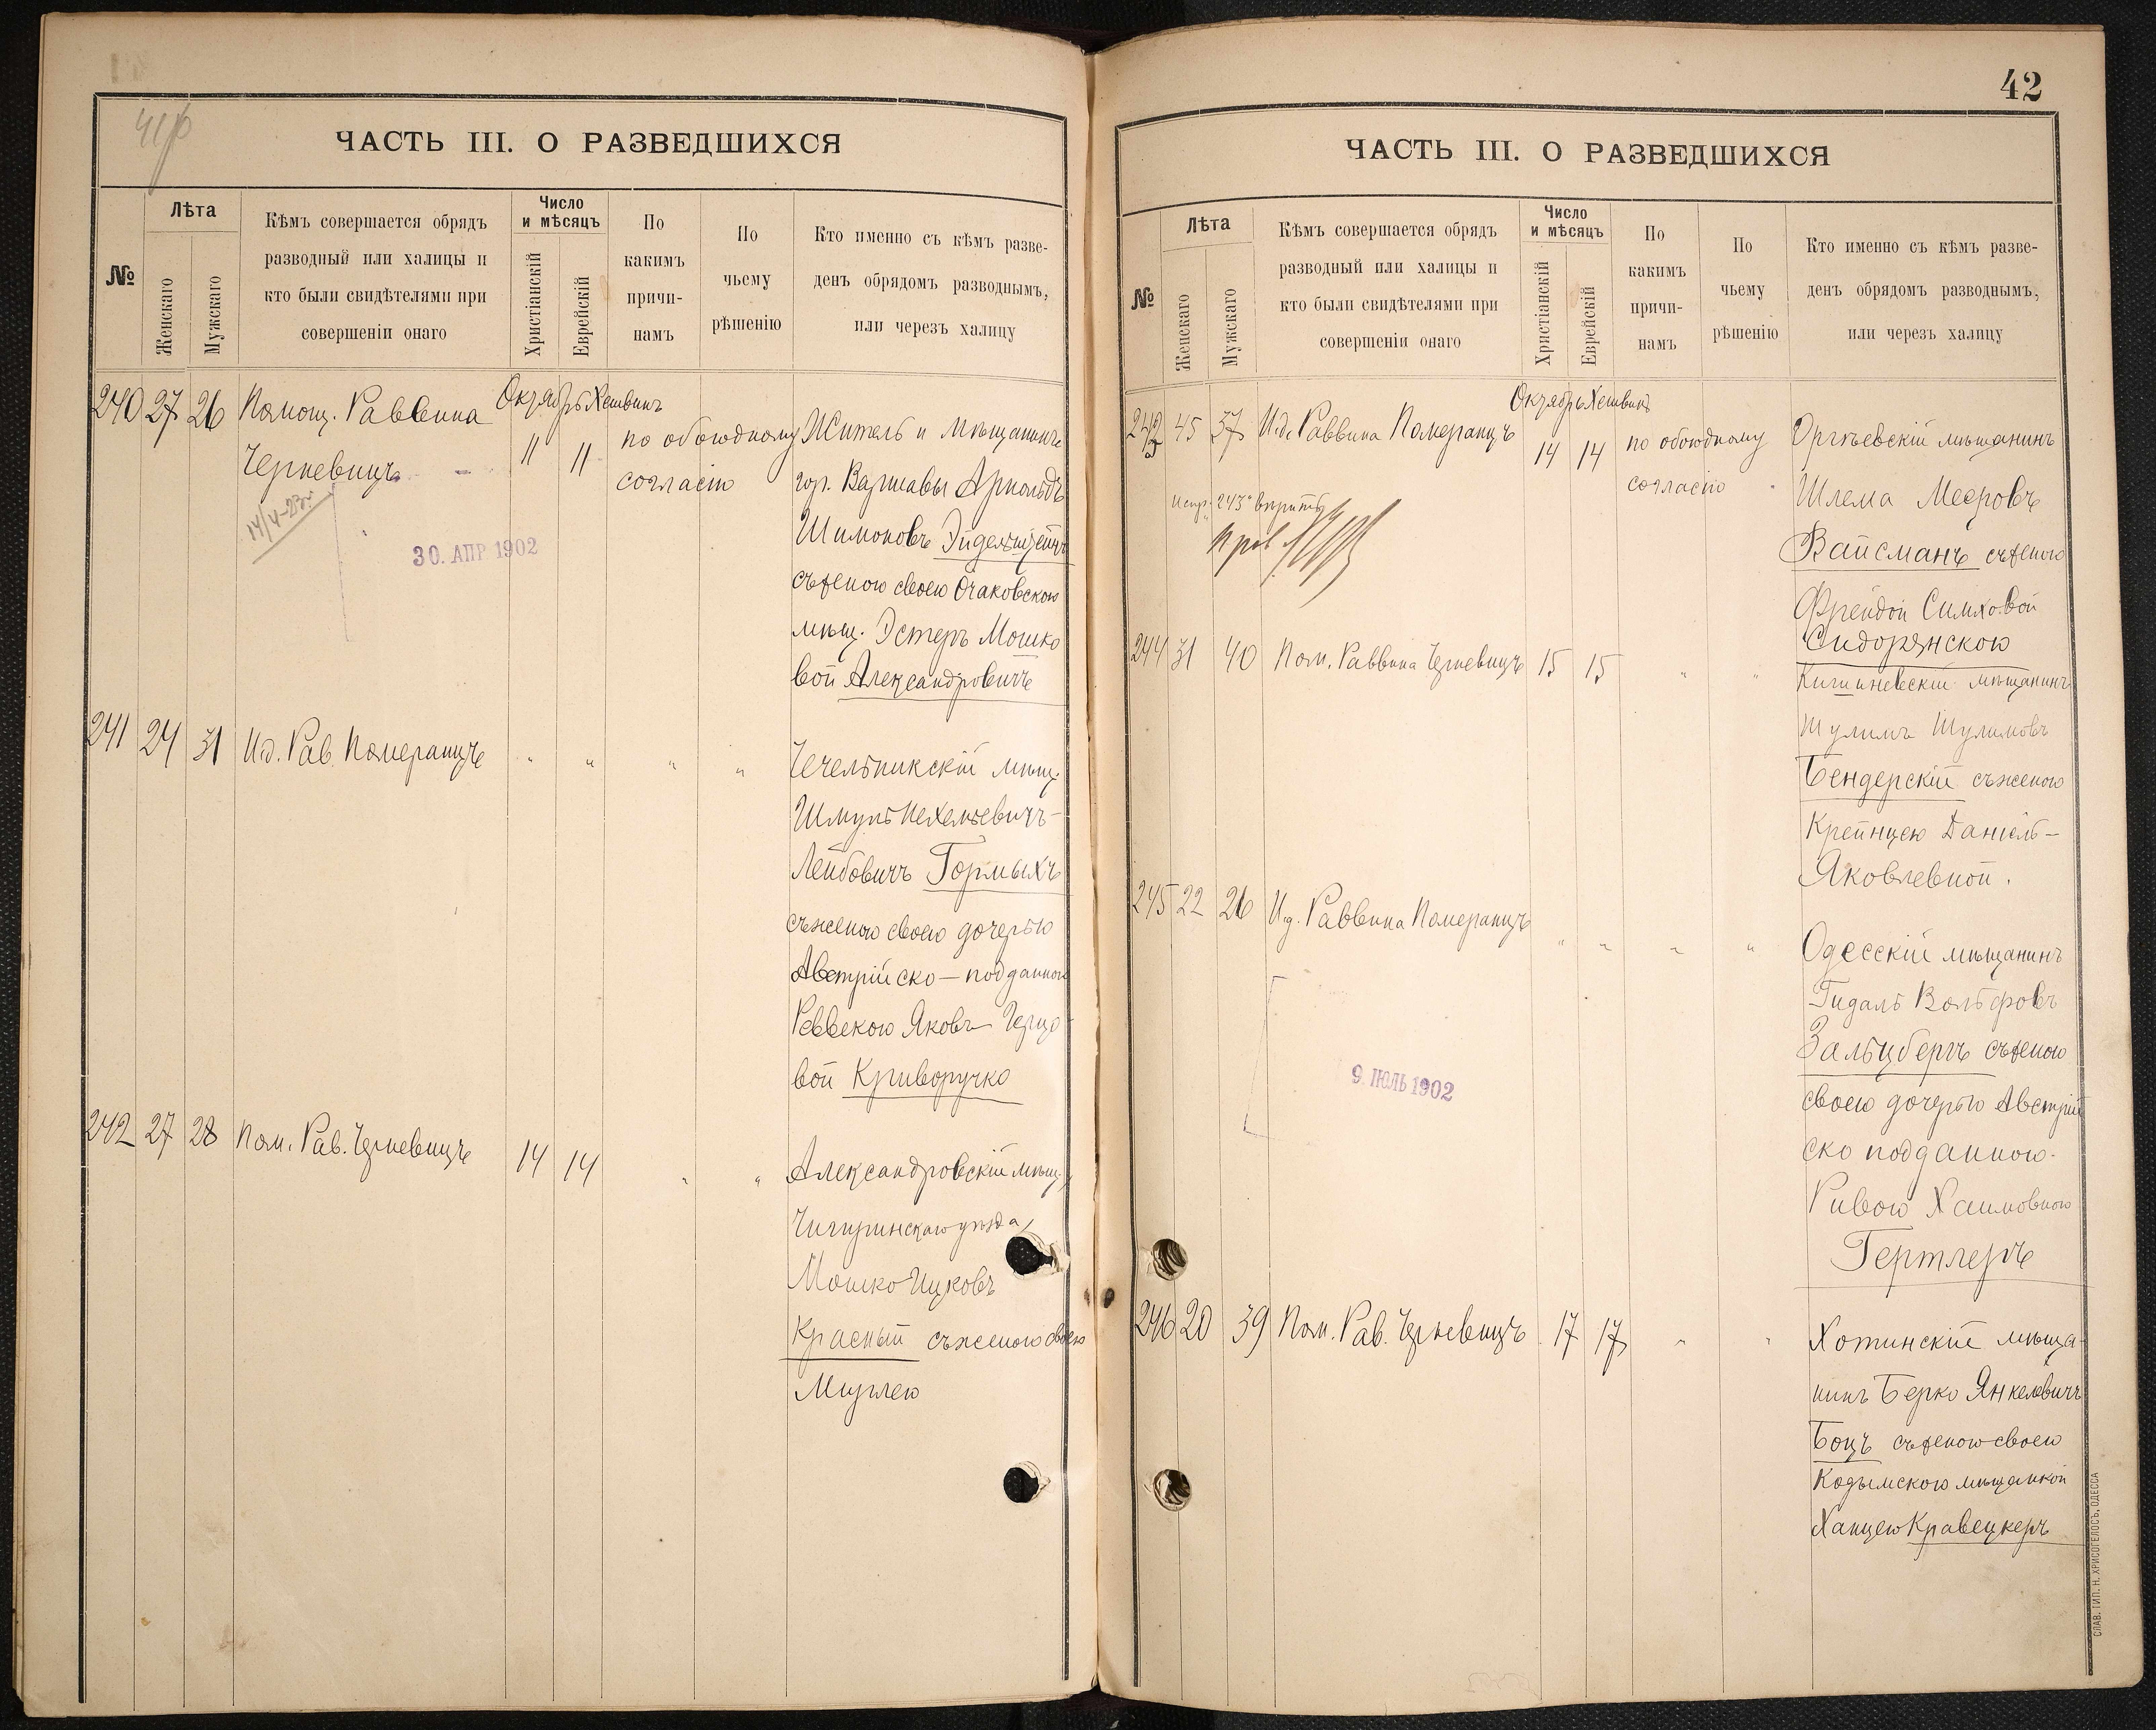 41/об
ЧАСТЬ III. О РАЗВЕДШИХСЯ
№
Лѣта
Женскаго
Мужскаго
Кѣмъ совершается обрядъ
разводный или халицы и
кто были свидѣтелями при
совершеніи онаго
Число
и мѣсяцъ
Христіанскій
Еврейскій
По
какимъ
причи-
намъ
По
чьему
рѣшенію
Кто именно съ кѣмъ разве-
денъ обрядомъ разводнымъ,
или черезъ халицу
Октябрь Хешвинъ
240 27 26 Помощ. Раввина
Черневицъ
11 11
по обоюдному
согласію
Житель и мѣщанинъ
гор. Варшавы Арнольдъ
Шимоновъ
съ женою своею Очаковскою
мѣщ. Эстеръ Мошко
вой Александровичъ
14/4-23г.
30. АПР 1902
241 24 31 И.д. Рав. Померанцъ " " " "
Чечельникскій мѣщ.
Шмуль Нехемьевичъ-
Лейбовичъ Гормыхъ
съ женою своею дочерью
Австрійско-подданного
Реввекою Яковъ Герцо
вой Криворучко
242 27 28 Пом. Рав. Черневицъ 14 14 " "
Александровскій мѣщ.,
Чигиринскаго уѣзда,
Мошко Ицковъ
Красный съ женою своею
42
ЧАСТЬ III. О РАЗВЕДШИХСЯ
№
Лѣта
Женскаго
Мужскаго
Кѣмъ совершается обрядъ
разводный или халицы и
кто были свидѣтелями при
совершеніи онаго
Число
и мѣсяцъ
Христіанскій
Еврейскій
По
какимъ
причи-
намъ
По
чьему
рѣшенію
Кто именно съ кѣмъ разве-
денъ обрядомъ разводнымъ,
или черезъ халицу
Октябрь Хешвинъ
243 45 37 И.д. Раввина Померанцъ
14 14
по обоюдному
согласію
Оргѣевскій мѣщанинъ
Шлема Мееровъ
Вайсманъ съ женою
Фрейдой Симховой
Сидорянскою
Испр. "243" вѣрить
244 31 40 Пом. Раввина Черневицъ 15 15 " "
Кишиневскій мѣщанинъ
Шулимъ Шулимовъ
Бендерскій съ женою
Крейнцею Даніель-
Яковлевной.
245 22 26 И.д. Раввина Померанцъ " " " "
Одесскій мѣщанинъ
Гидаль Вольфовъ
Зальцбергъ съ женою
своею дочерью Австрій
ско подданного
Ривою Хаимовною
Гертлеръ
9. ІЮЛЬ 1902
246 20 39 Пом. Рав. Черневицъ 17 17 " "
Хотинскій мѣща-
нинъ Берко Янкелевичъ
Боцъ съ женою своею
Кодымскою мѣщанкой
Ханцею Кравецкеръ
СЛАВ. ТИП. Н. ХРИСОГЕЛОСЪ, ОДЕССА